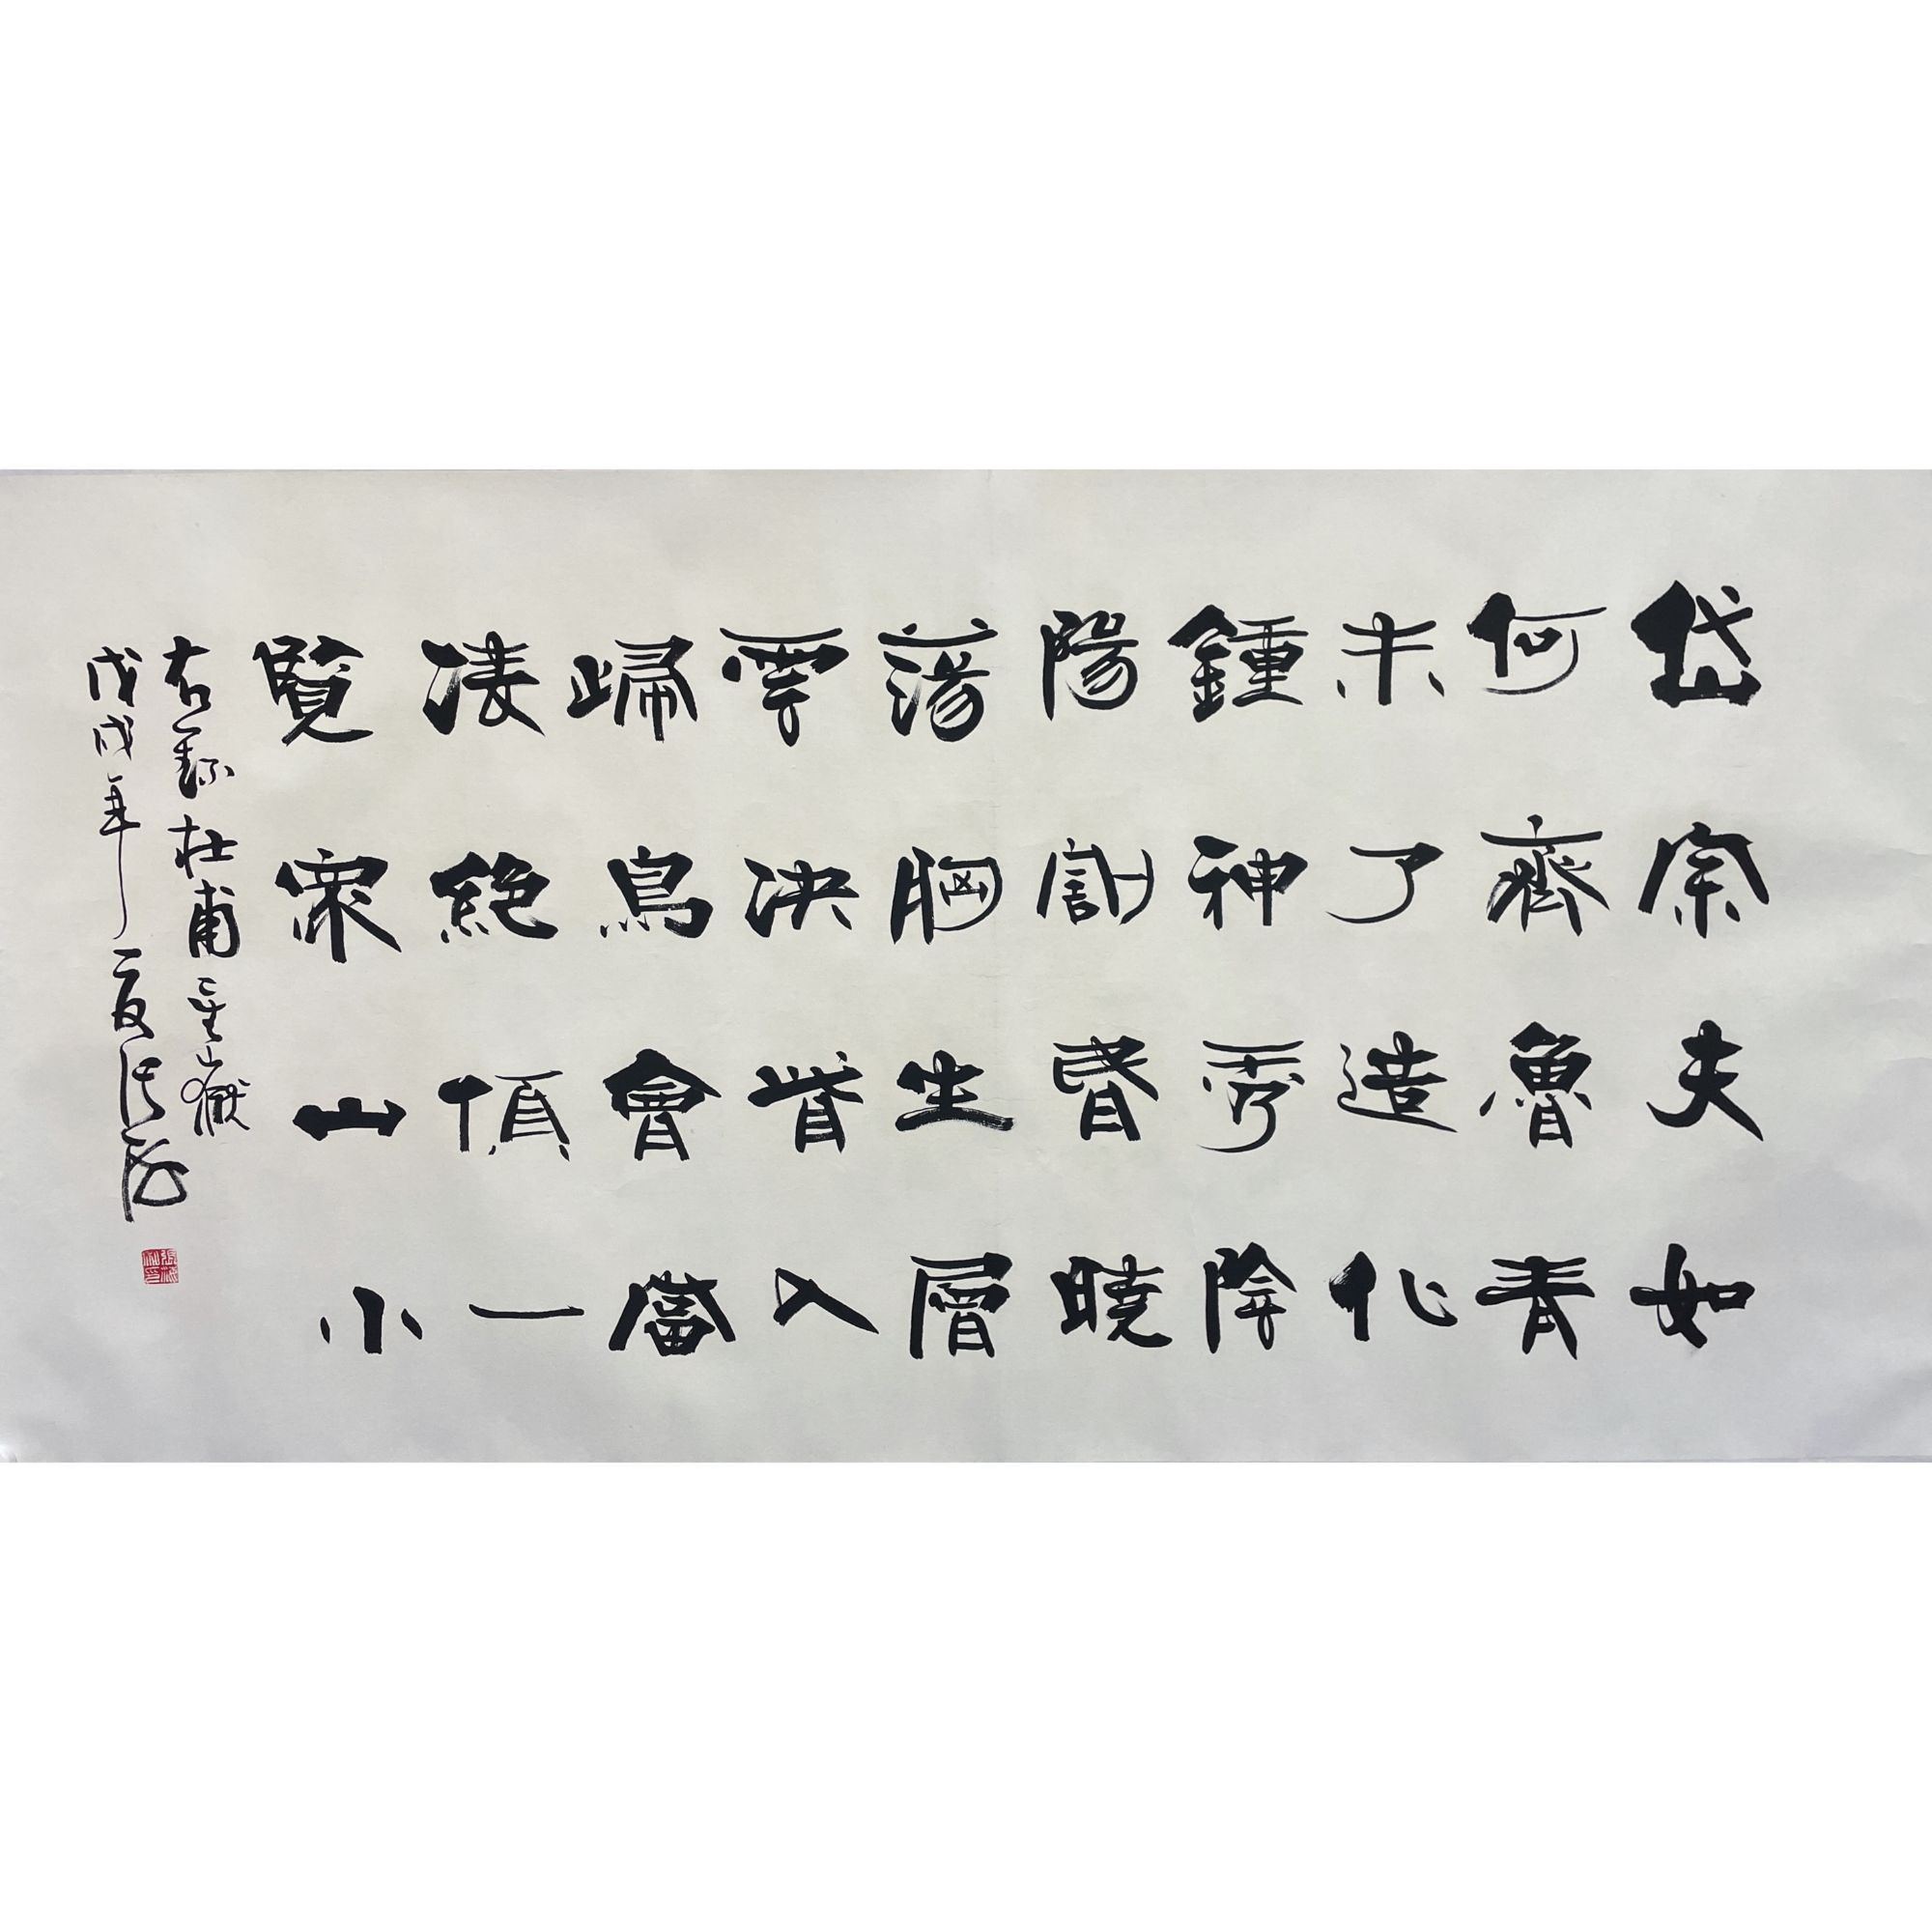 岱宗夫如
何齊魯青
未了造化
鍾神秀陰
陽割昏曉
蕩胸生層
雲决眥入
歸鳥會當
凌絶頂一
覽衆山小
右錄杜甫望嶽
戊戌年夏張